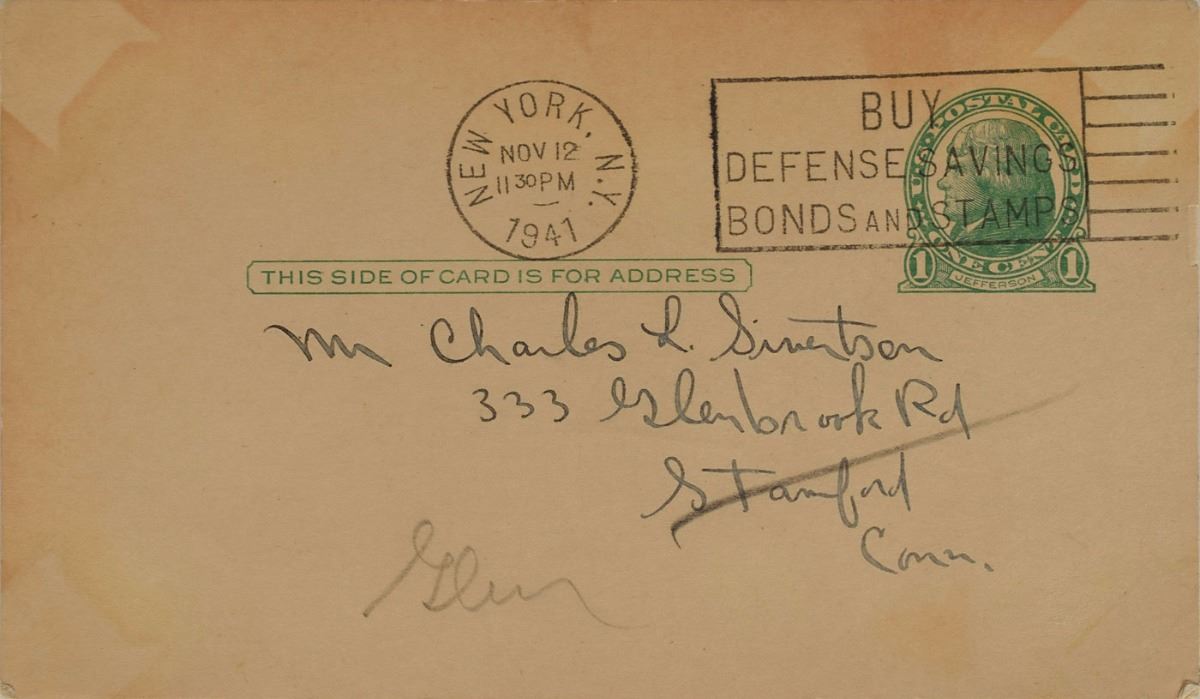 NEW YORK, N.Y.
NOV 12
11 30 PM
1941
BUY
DEFENSE SAVINGS
BONDS AND STAMPS
U.S. POSTAL CARD
ONE CENT
1 JEFFERSON 1
THIS SIDE OF CARD IS FOR ADDRESS
Mr Charles L. Sivertson
333 Glenbrook Rd
Stamford
Conn.
Glen